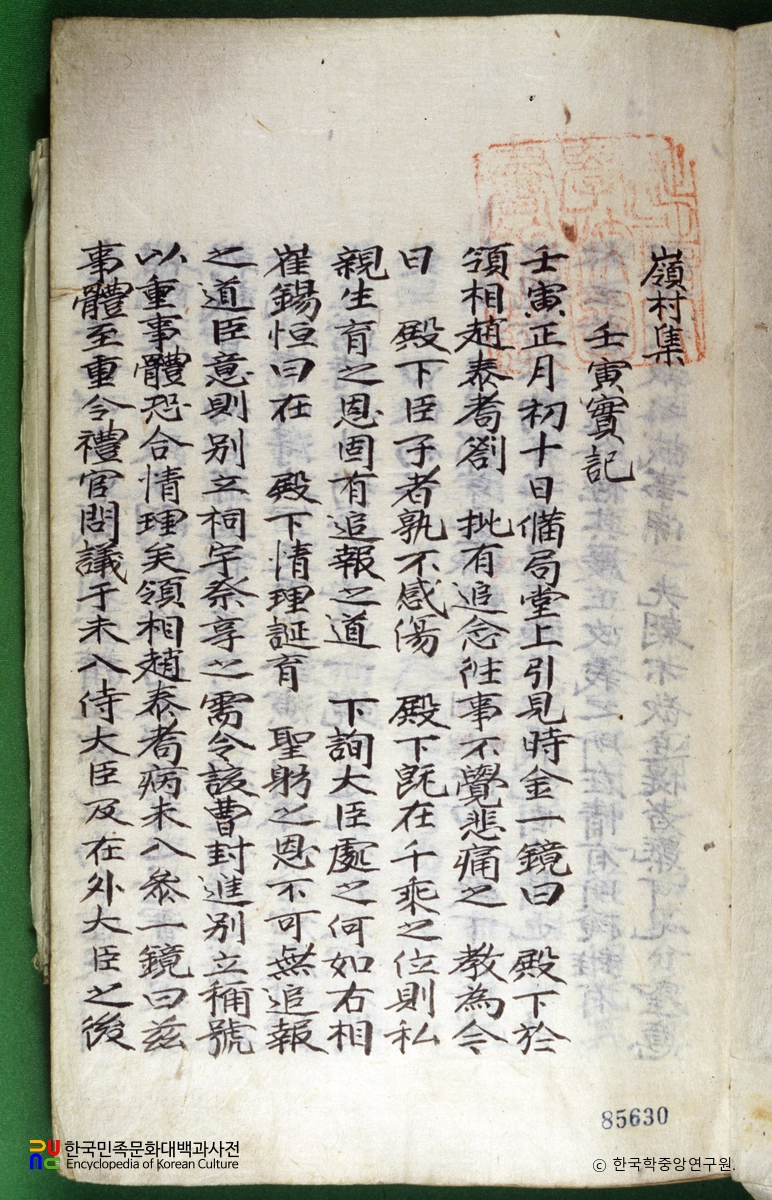 嶺村集
壬寅實記
壬寅正月初十日備局堂上引見時金一鏡曰 殿下於
領相趙泰耉劄 批有追念徃事不覺悲痛之 教為今
日 殿下臣子者孰不感傷 殿下旣在千乘之位則私
親生育之恩固有追報之道 下詢大臣處之何如右相
崔錫恒曰在 殿下情理誕育 聖躬之恩不可無追報
之道臣意則別立祠宇祭享之需令該曹封進別立稱號
以重事體恐合情理矣領相趙泰耉病未入參一鏡曰茲
事體至重令禮官問議于未入侍大臣及在外大臣之後
85630
한국민족문화대백과사전
Encyclopedia of Korean Culture
© 한국학중앙연구원.